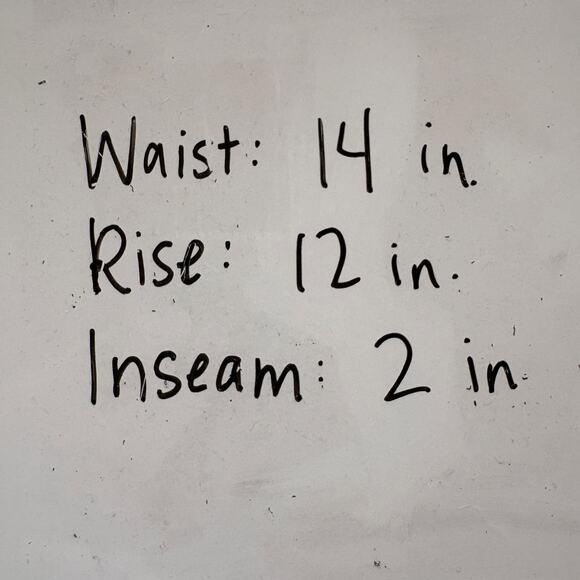 Waist: 14 in.
Rise: 12 in.
Inseam: 2 in.